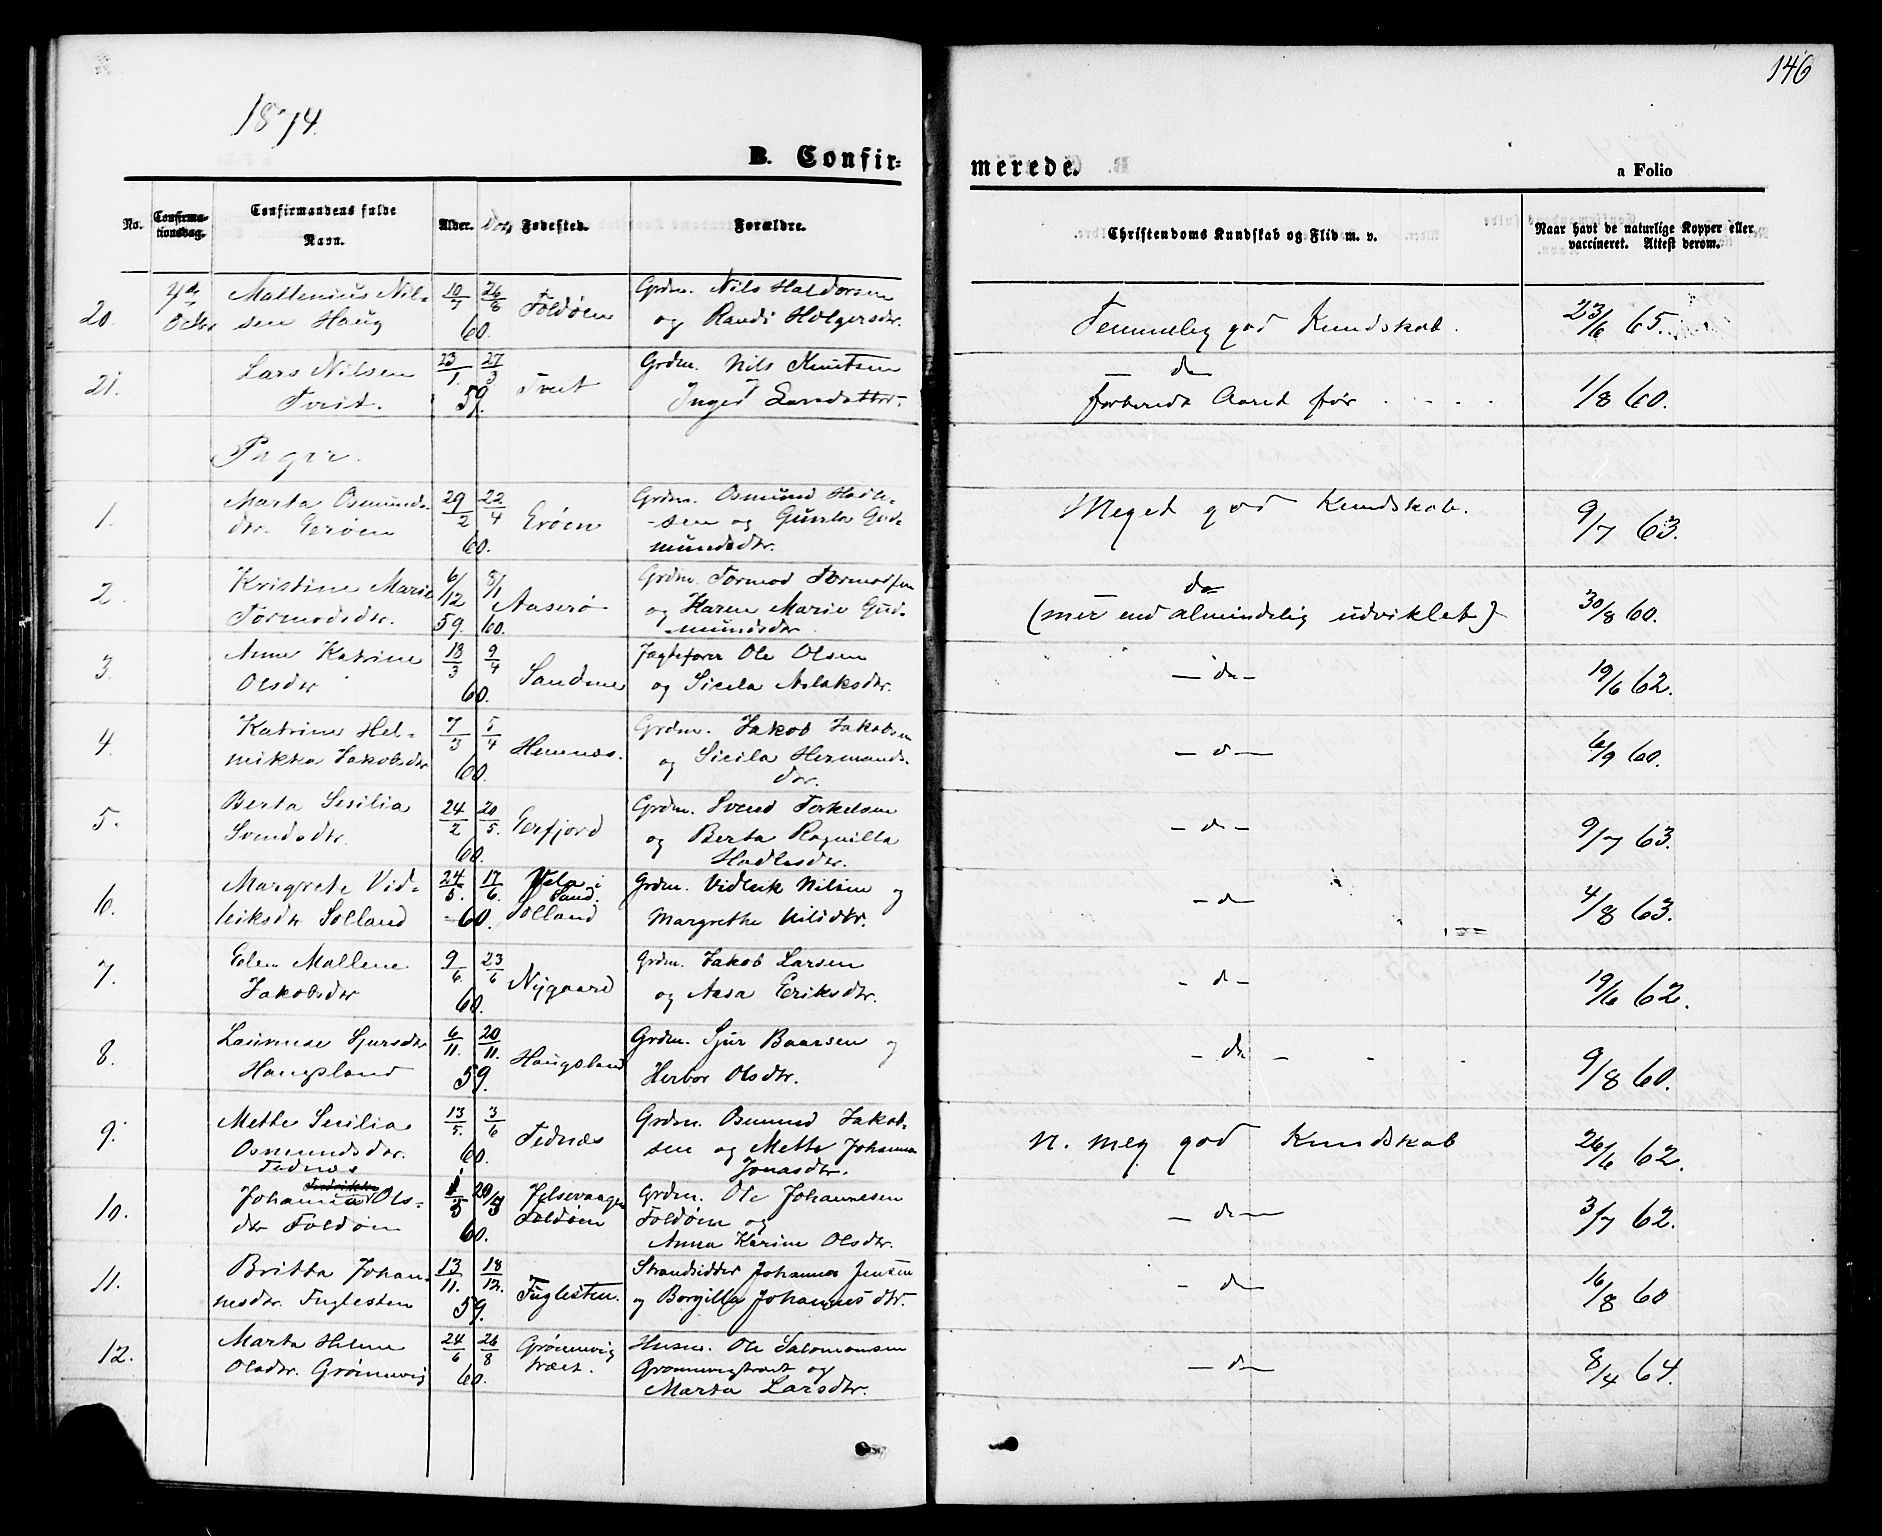 146
1874.
B. Confirmerede.
a Folio
No. Confirmationsdag. Confirmandens fulde Navn. Alder. Døbt Fødested. Forældre. Christendoms Kundskab og Flid m. v. Naar havt de naturlige Kopper eller vaccineret. Attest derom.
20. 4de Octbr Mattenius Nil-
sen Haug 10/7 26/8 60. Foldøen Grdm. Nils Haldorsen
og Randi Holgersdtr. Temmelig god Kundskab. 23/6 65.
21. Lars Nilsen
Tveit. 23/1. 27/3 59. Tveit Grdm. Nils Knutsen
Inger Larsdatter. do
forberedt Aaret før 1/8 60.
Piger.
1. Marta Osmunds-
dtr. Erøen 29/2 22/4 60. Erøen Grdm. Osmund Hadle-
sen og Gunla Gud-
mundsdtr. Meget god Kundskab. 9/7 63.
2. Kristine Marie
Tormodsdtr. 6/12 59. 8/1 60. Aaserø Grdm. Tormod Tormodsen
og Karen Marie Gud-
mundsdtr do
(mer end almindelig udviklet) 30/8 60.
3. Anne Katrine
Olsdtr 18/3 9/4 60. Sandene Jagtefører Ole Olsen
og Sicela Aslaksdtr. - do - 19/6 62.
4. Katrine Hel-
mikka Jakobsdtr 7/3 5/4 60. Hennæs. Grdm. Jakob Jakobsen
og Sicila Hermands-
dtr. - do - 6/9 60.
5. Berta Sesilia
Svendsdtr. 24/2 20/5. 60. Erfjord Grdm. Svend Torkelsen
og Berta Ragnilla
Hadlesdtr. - do - 9/7 63.
6. Margrete Vid-
leiksdtr Solland 24/5. 17/6. 60. Vela i
Sand.
Solland Grdm. Vidleik Nilsen og
Margrethe Nilsdtr. - do - 4/8 63.
7. Elen Mallene
Jakobsdtr 9/6 23/6 60. Nygaard Grdm. Jakob Larsen
og Aasa Eriksdtr. - do - 19/6 62.
8. Laurense Sjursdtr
Haugsland 6/11. 20/11. 59. Haugsland Grdm. Sjur Baarsen og
Herbor Olsdtr. - do - 9/8 60.
9. Mette Sesilia
Osmundsdtr.
Tednæs 13/5. 3/6 60. Tednæs Grdm. Osmund Jakob-
sen og Mette Johanna
Jonasdtr. N. meg god Kundskab 26/6 62.
10. Johanna Ols-
dtr Foldøen 60. Jelsevaagen
Foldøen Grdm. Ole Johannesen
Foldøen og
Anna Karine Olsdtr. - do - 3/7 62.
11. Britta Johan-
nesdtr. Fuglesten 13/11. 18/12. 59. Fuglesten. Strandsidder Johannes Jensen
og Borgilla Johannesdtr. - do 16/8 60
12. Marta Helene
Olsdtr. Grønnevig 24/6 26/8 60. Grønnevig
træet. Husm. Ole Salomonsen
Grønnevigtræet og
Marta Larsdtr. - do - 8/4 64.